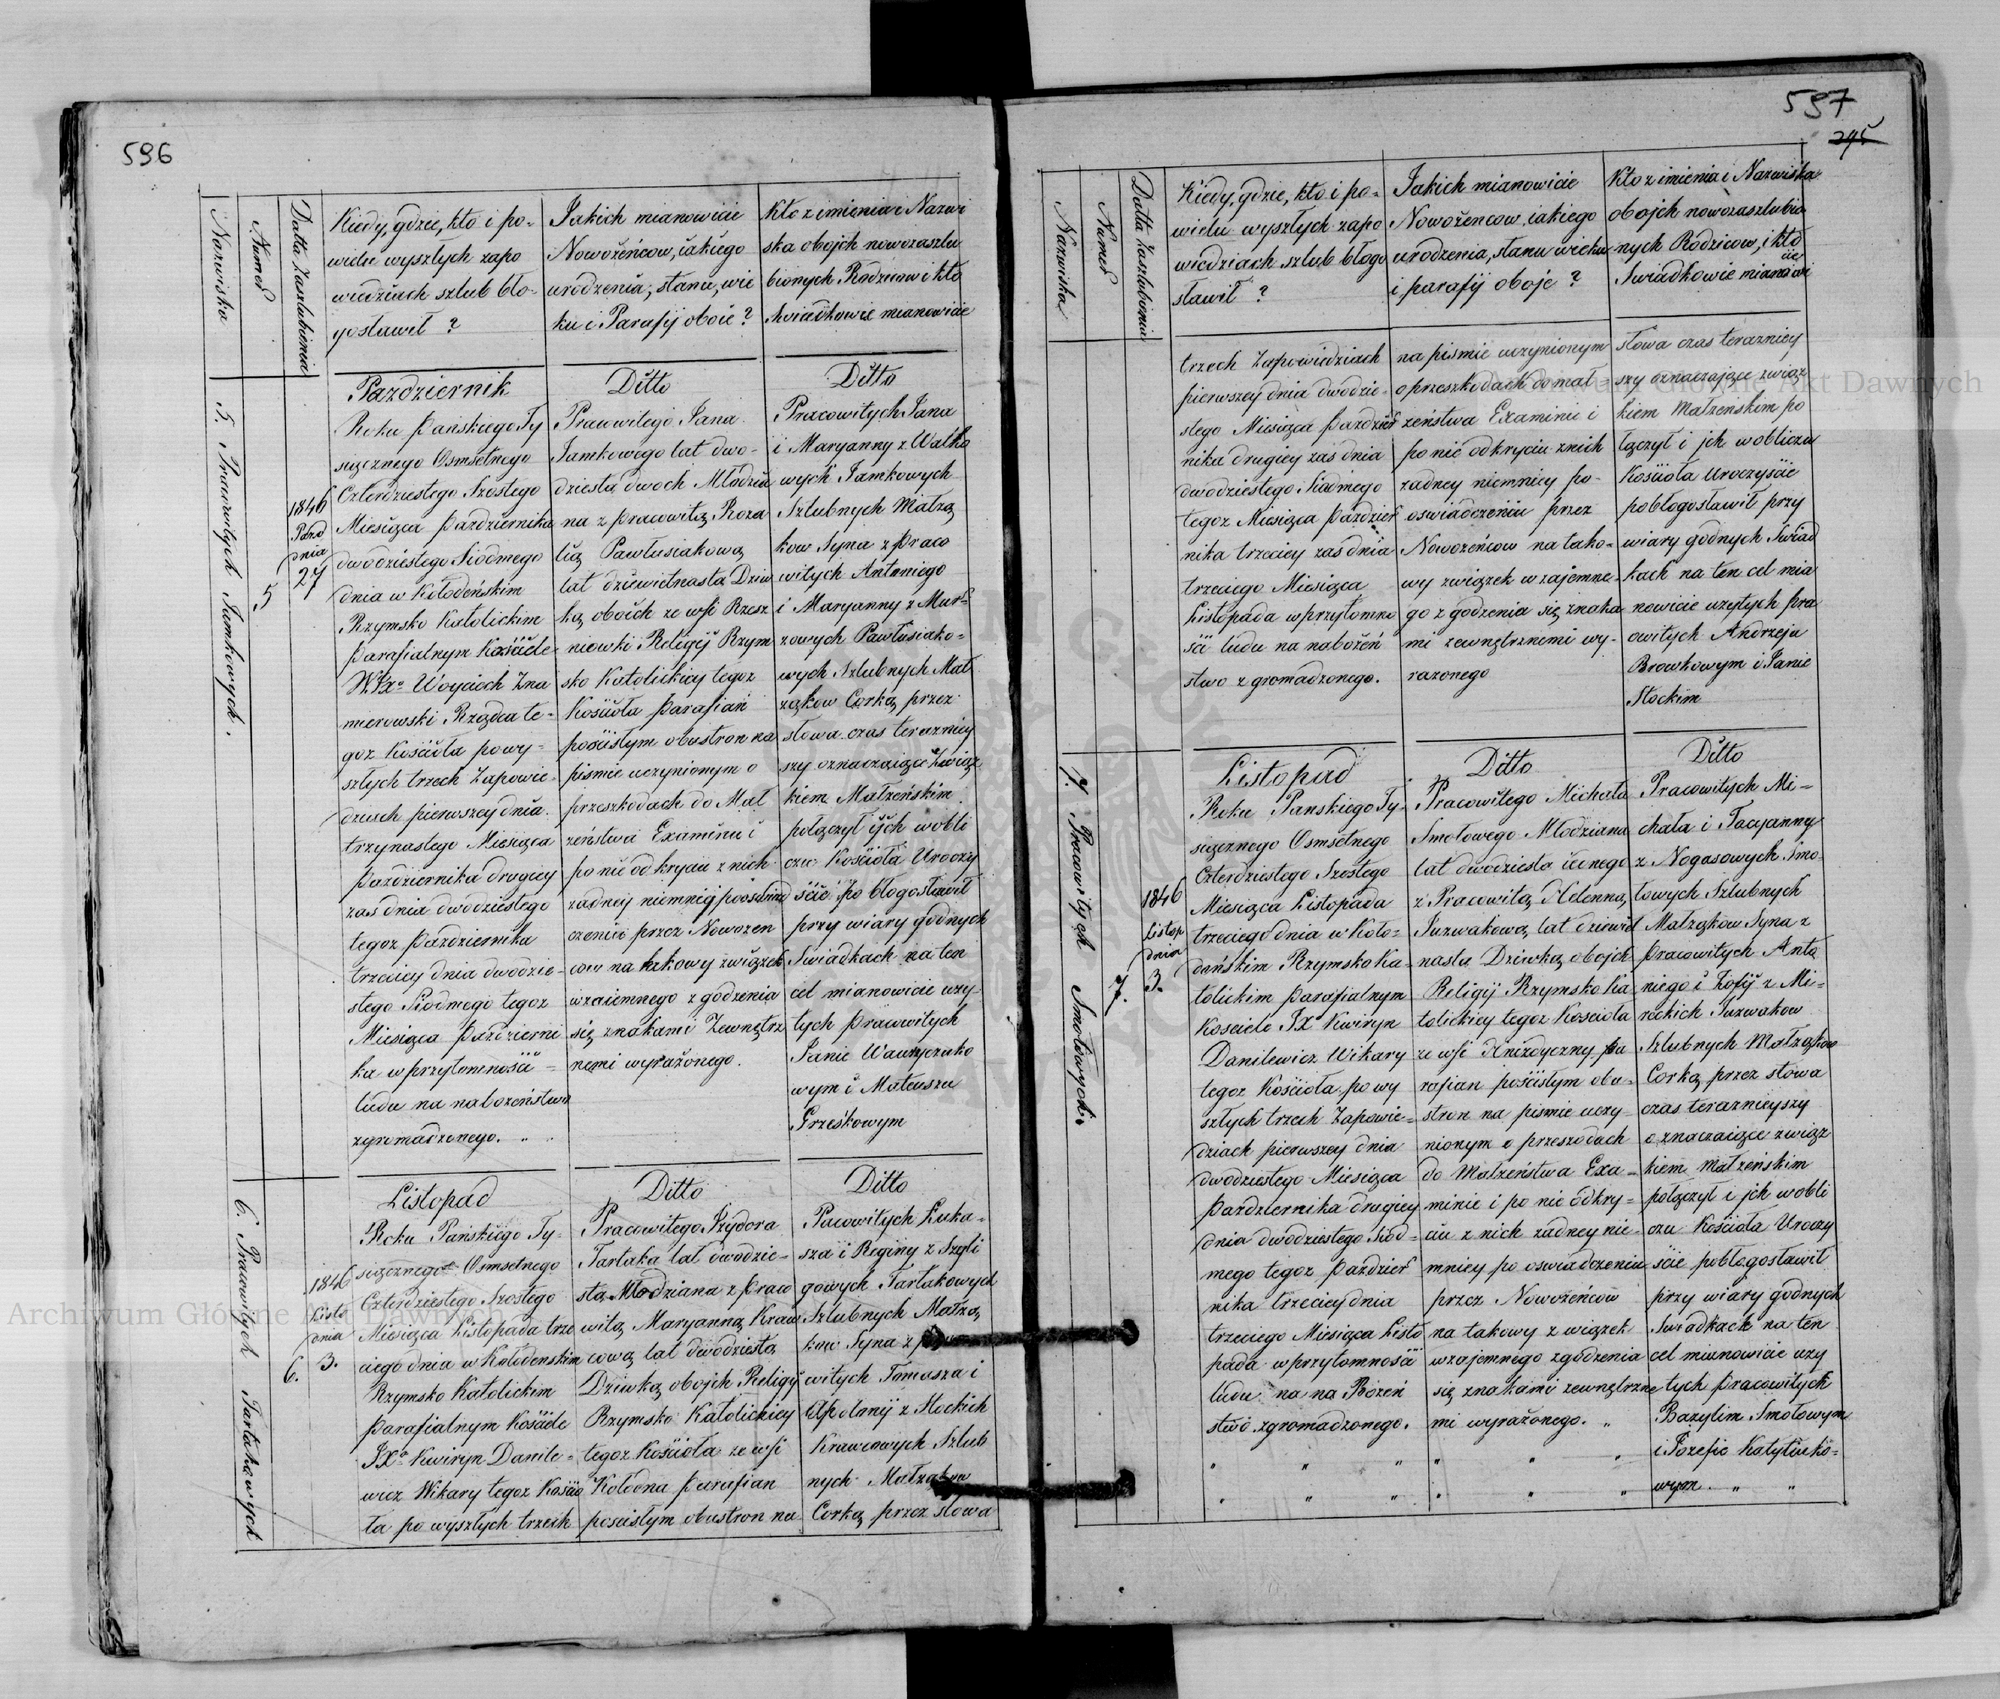 596
Nazwiska
Numer
Datta Zaszlubienia
Kiedy, gdzie, kto i po-
wielu wyszłych zapo
wiedziach szlub bło-
gosławił ?
Jakich mianowicie
Nowożeńcow, iakiego
urodzenia, stanu, wie
ku i Parafij oboie ?
Kto z imienia i Nazwi
ska obojch nowozaszlu
bionych Rodzicow i kto
Swiadkowie mianowicie
5. Pracowitych Jamkowych.
5
1846
Pazd
dnia
27
Pazdziernik
Roku Pańskiego Ty
siącznego Osmsetnego
Czterdziestego Szostego
Miesiąca Pazdziernika
dwudziestego Siodmego
dnia w Kołodeńskim
Rzymsko Katolickim
Parafialnym Kościele
W.JXo Woyciech Zna
mierowski Rządca te-
goz Kościoła po wy-
szłych trzech Zapowie-
dziach pierwszey dnia
trzynastego Miesiąca
Pazdziernika drugiey
zas dnia dwudziestego
tegoz Pazdziernika
trzeciey dnia dwudzie-
stego Siodmego tegoz
Miesiąca Pazdzierni
ka w przytomności =
ludu na nabożeństwo
zgromadzonego. „ „
Ditto
Pracowitego Jana
Jamkowego lat dwu-
dziestu dwoch Młodzia
na z Pracowitą Roza
lią Pawlusiakową
lat dziewietnastu Dziw
ką oboich ze wsi Rzesz
niowki Religij Rzym
sko Katolickiey tegoz
Kościoła Parafian
pościsłym obustron na
pismie uczynionym o
przeszkodach do Mał
żeństwa Examinu i
po nie odkryciu z nich
zadnej niemniej po oswiad
czeniu przez Nowozen
cow na takowy związek
wzaiemnego zgodzenia
się znakami Zewnętrz
nemi wyrażonego.
Ditto
Pracowitych Jana
i Maryanny z Walko
wych Jamkowych
Szlubnych Małzą
kow Syna z Praco
witych Antoniego
i Maryanny z Mur-
zowych Pawlusiako-
wych Szlubnych Mał
ząkow Corką, przez
słowa czas teraznieỳ
szy oznaczaiące Związ
kiem Małżeńskim
połączył ijch wobli
czu Kościoła Uroczy
ście po błogosławił
przy wiary godnych
Swiadkach na ten
cel mianowicie uży-
tych Pracowitych
Janie Wawryczuko
wym i Mateuszu
Grześkowym
6. Pracowitych Tartakowych
6.
1846
Listo
dnia
3.
Listopad
Roku Pańskiego Ty-
siącznego Osmsetnego
Czterdziestego Szostego
Miesiąca Listopada trze
ciego dnia w Kołodenskim
Rzymsko Katolickim
Parafialnym Kościele
JXo Kwiryn Danile-
wicz Wikary tegoz Kościo
ła po wyszłych trzech
Ditto
Pracowitego Jzydora
Tartaka lat dwudzie-
stu Młodziana z Praco
witą Maryanną Kraw
cową lat dwudziestu
Dziwką obojch Religij
Rzymsko Katolickiey
tegoz Kościoła ze wsi
Kołodna Parafian
poscisłym obustron na
Ditto
Pacowitych Łuka-
sza i Reginy z Szeli
gowych Tartakowych
Szlubnych Małzą
kow Syna z
witych Tomasza i
Apolonij z Stockich
Krawcowych Szlub
nych Małząkow
Corką przez słowa
597
295
Nazwiska
Numer
Datta Zaszlubienia
Kiedy, gdzie, kto i po-
wielu wyszłych zapo
wiedziach szlub błogo
sławił ?
Jakich mianowicie
Nowożencow, iakiego
urodzenia, stanu wieku
i parafij oboje ?
Kto z imienia i Nazwiska
obojch nowozaszlubio
nych Rodzicow, i kto
Swiadkowie mianowicie
trzech Zapowiedziach
pierwszey dnia dwudzie-
stego Miesiąca Pazdzier
nika drugiey zas dnia
dwudziestego Siodmego
tegoz Miesiąca Pazdzier
nika trzeciey zas dnia
trzeciego Miesiąca
Listopada w przytomno
ści ludu na nabożeń
stwo zgromadzonego.
na pismie uczynionym
o przeszkodach do mał
żeństwa Examinie i
po nie odkryciu z nich
zadney niemniey po-
oswiadczeniu przez
Nowożeńcow na tako-
wy związek wzajemne-
go zgodzenia się znaka
mi zewnętrznemi wy-
razonego
słowa czas terazniey
szy oznaczające związ
kiem Małzenskim po
łączył i jch w obliczu
Kościoła Uroczyście
pobłogosławił przy
wiary godnych Swiad
kach na ten cel mia
nowicie użytych Pra
cowitych Andrzeja
Browkowym i Janie
Stockim
7. Pracowitych Smołowych.
7.
1846
Listop
dnia
3.
Listopad
Roku Panskiego Ty-
siącznego Osmsetnego
Czterdziestego Szostego
Miesiąca Listopada
trzeciego dnia w Koło-
deńskim Rzymsko Ka-
tolickim Parafialnym
Kosciele JX Kwiryn
Danilewicz Wikary
tegoz Kościoła po wy
szłych trzech Zapowie-
dziach pierwszey dnia
dwudziestego Miesiąca
Pazdziernika drugiey
dnia dwudziestego Siod-
mego tegoz Pazdzier
nika trzeciey dnia
trzeciego Miesiąca Listo
pada w przytomności
ludu na na Bożeń
stwo zgromadzonego.
Ditto
Pracowitego Michała
Smołowego Młodziana
lat dwudziestu iednego
z Pracowitą Helenną
Juzwakową lat dziewięt
nastu Dziewką obojch
Religij Rzymsko Ka
tolickiey tegoz Kościoła
ze wsi Snizdyczny Pa
rafian pościsłym obu-
stron na pismie uczy-
nionym o przeszodach
do Małżeństwa Exa-
minie i po nie odkry-
ciu z nich zadney nie-
mniey po oswiadczeniu
przez Nowożeńcow
na takowy związek
wzajemnego zgodzenia
się znakami zewnętrzne
mi wyrażonego. „
Ditto
Pracowitych Mi-
chała i Tacyanny
z Nogasowych Smo-
łowych Szlubnych
Małząkow Syna z
Pracowitych Anto
niego i Zofij z Mi-
reckich Juzwakow
Szlubnych Małząkow
Corką przez słowa
czas terazniejszy
oznaczaiące związ
kiem małżeńskim
połączył i jch wobli
czu Kościoła Uroczy
ście pobłogosławił
przy wiary godnych
Swiadkach na ten
cel mianowicie uży
tych Pracowitych
Bazylim Smołowym
i Jozefie Katyluko-
wym. „ „
Archiwum Główne Akt Dawnych
Archiwum Główne Akt Dawnych